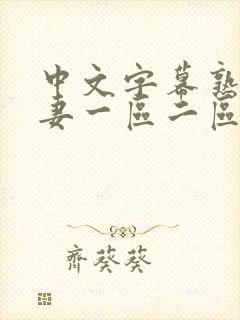 中文字幕熟
妻一區二區
齊葵葵